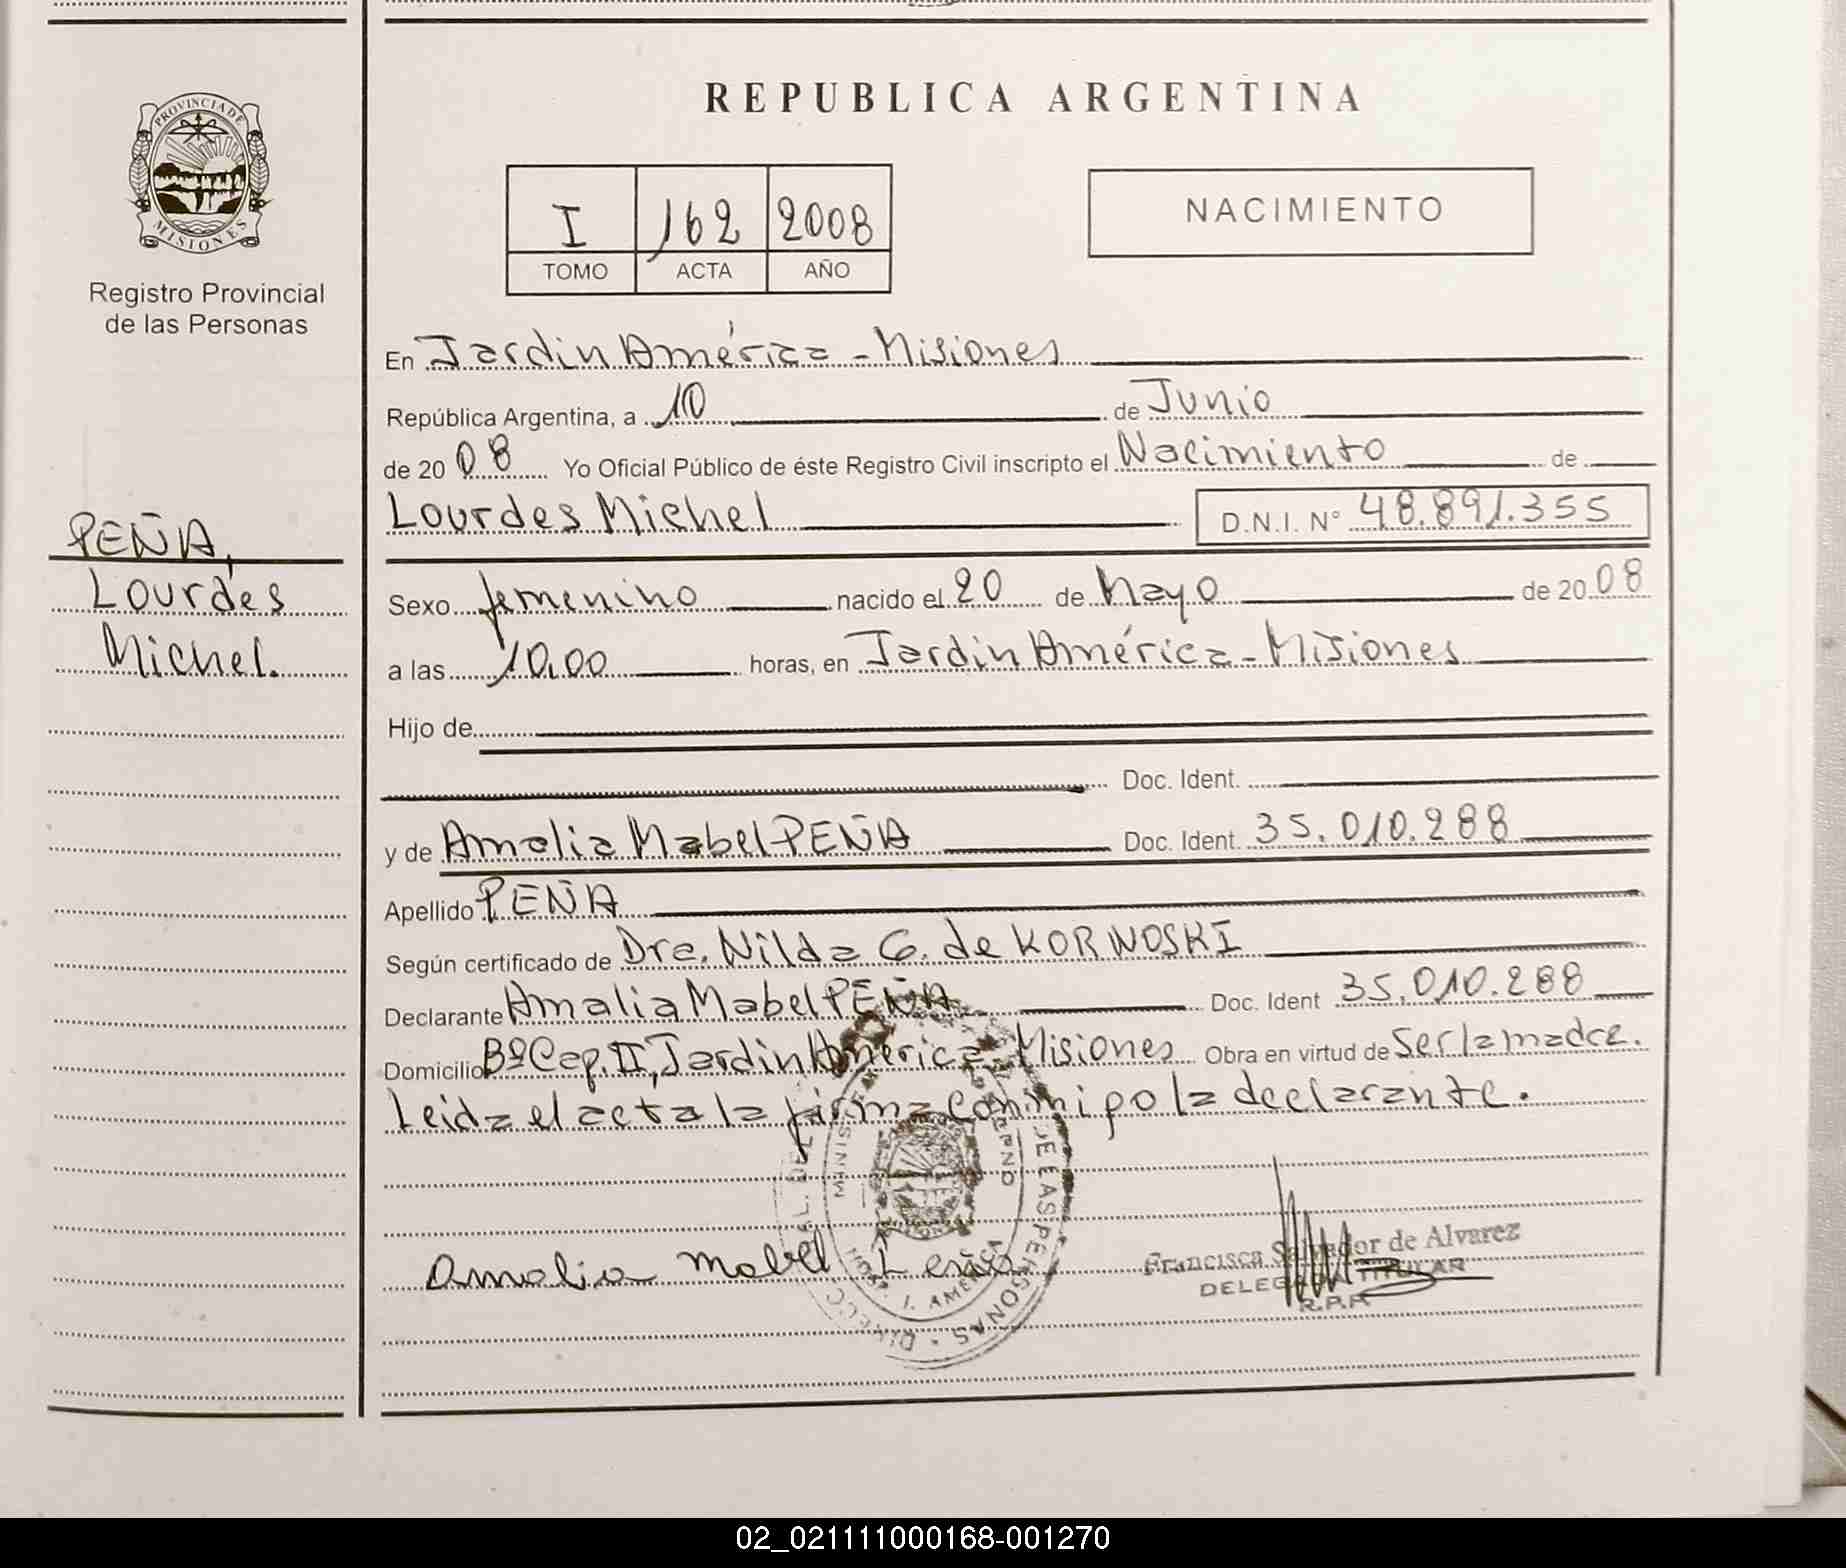 PROVINCIA DE
MISIONES
Registro Provincial
de las Personas
PEÑA,
Lourdes
Michel.
REPUBLICA ARGENTINA
I 162 2008
TOMO ACTA AÑO
NACIMIENTO
En Jardin América - Misiones
República Argentina, a 10 de Junio
de 2008 Yo Oficial Público de éste Registro Civil inscripto el Nacimiento de
Lourdes Michel D.N.I. N° 48.891.355
Sexo femenino nacido el 20 de Mayo de 2008
a las 10,00 horas, en Jardin América - Misiones
Hijo de
Doc. Ident.
y de Amalia Mabel PEÑA Doc. Ident. 35.010.288
Apellido PEÑA
Según certificado de Dra. Nilda G. de KORNOSKI
Declarante Amalia Mabel PEÑA Doc. Ident 35.010.288
Domicilio Bº Cap. II, Jardin América - Misiones Obra en virtud de Ser la madre.
Leida el acta la firma conmi po la declarante.
MINIS
DE LAS PERSONAS
I. AMERICA
Amalia Mabel Peña
Francisca Salvador de Alvarez
DELEGADA TITULAR
R.P.P.
02_021111000168-001270